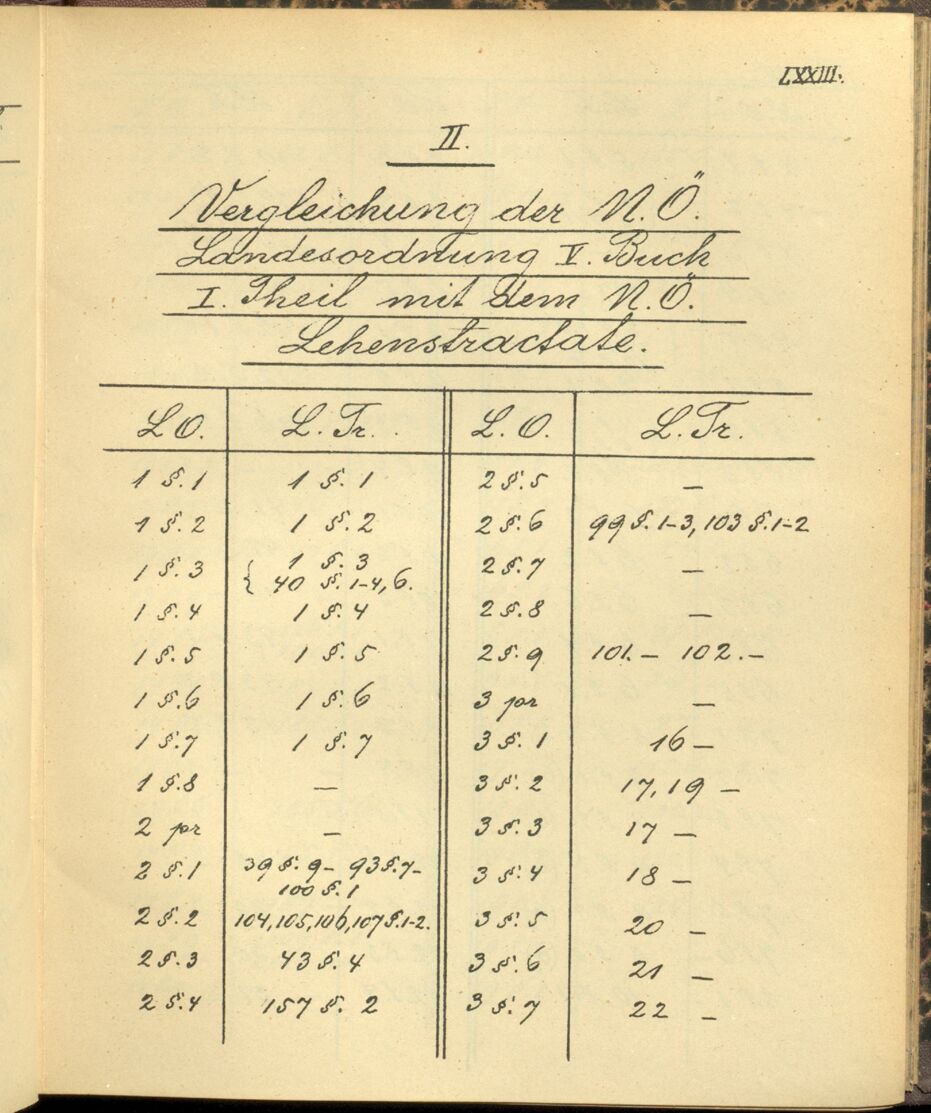 LXXIII.
II.
Vergleichung der N.Ö.
Landesordnung V. Buch
I. Theil mit dem N.Ö.
Lehenstractate.
L.O. L.Tr. L.O. L.Tr.
1 §.1 1 §.1 2 §.5 —
1 §.2 1 §.2 2 §.6 99 §.1-3, 103 §.1-2
1 §.3 { 1 §.3 2 §.7 —
40 §.1-4,6.
1 §.4 1 §.4 2 §.8 —
1 §.5 1 §.5 2 §.9 101.— 102.—
1 §.6 1 §.6 3 pr —
1 §.7 1 §.7 3 §.1 16 —
1 §.8 — 3 §.2 17,19 —
2 pr — 3 §.3 17 —
2 §.1 39 §.9— 93 §.7— 3 §.4 18 —
100 §.1
2 §.2 104,105,106,107 §.1-2. 3 §.5 20 —
2 §.3 43 §.4 3 §.6 21 —
2 §.4 157 §.2 3 §.7 22 —